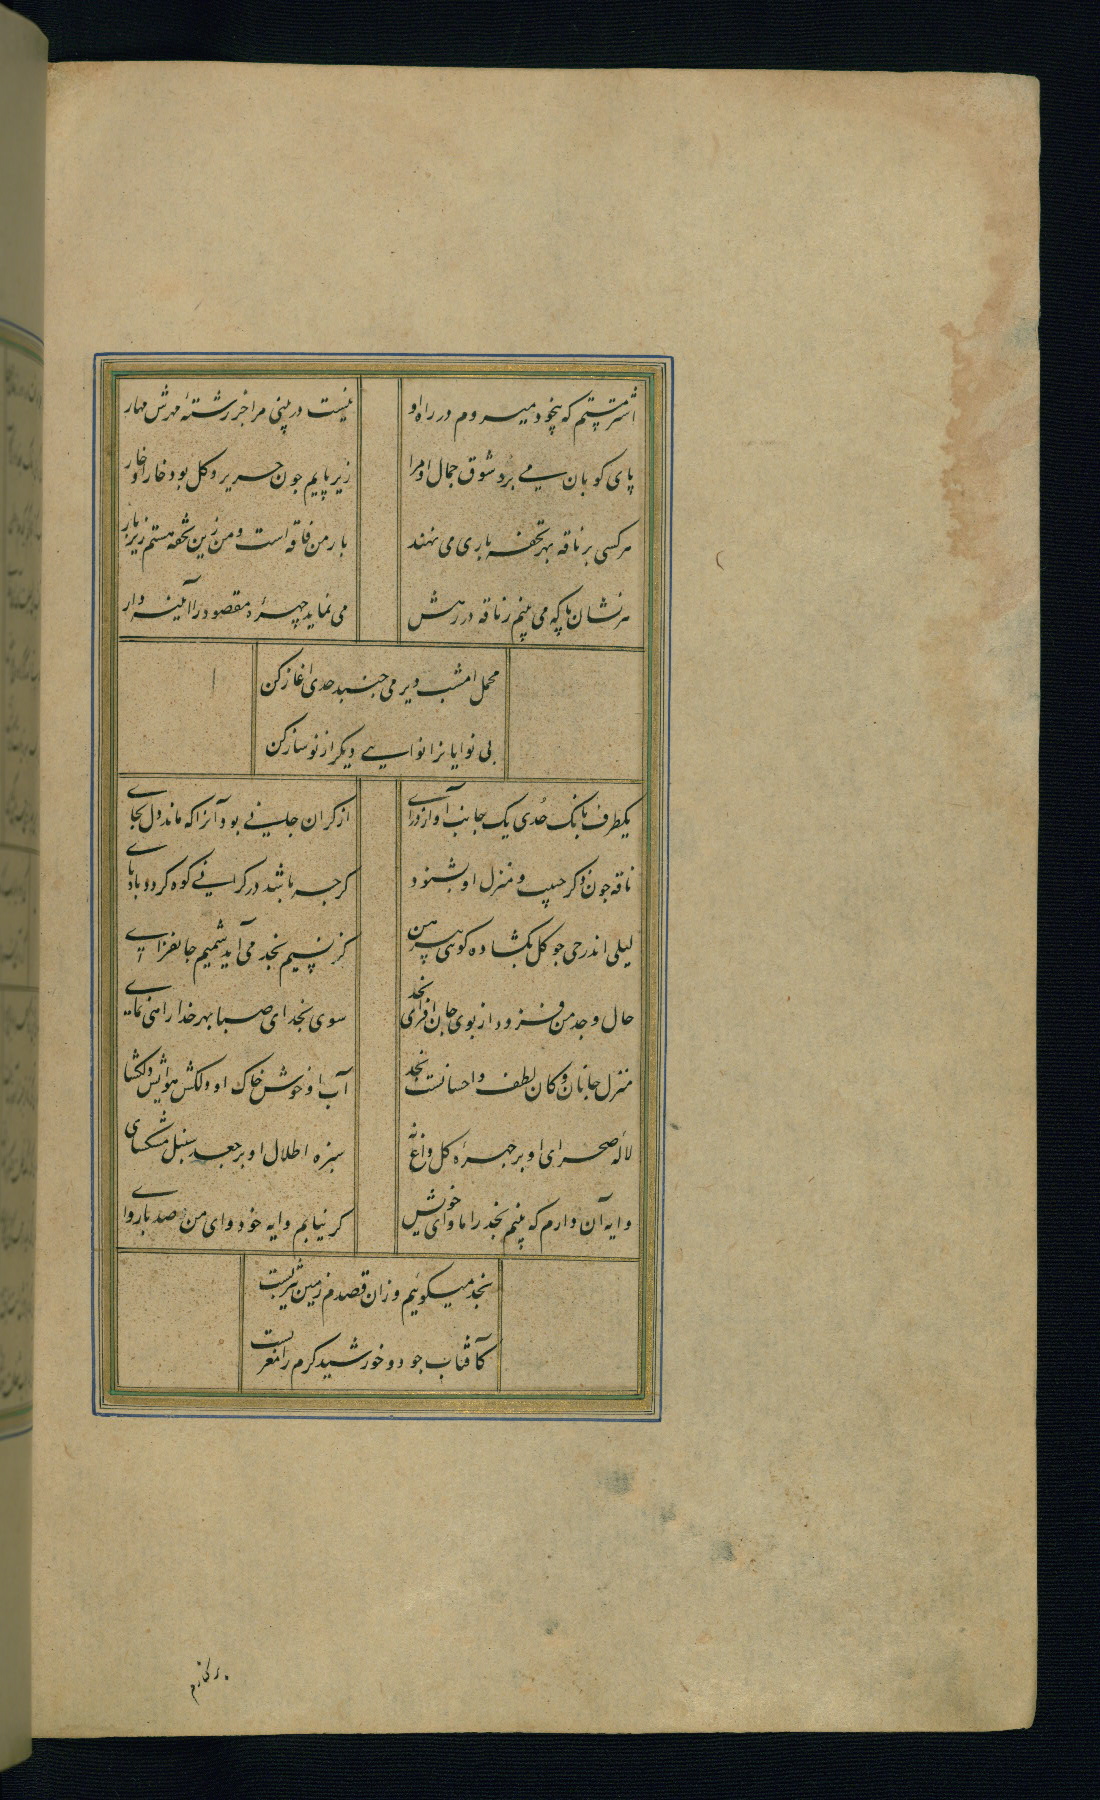 اشتر مستم که بیخود میروم در راه او
نیست در بینی مرا جز رشتهٔ مهرش مهار
پای کوبان می برد شوق جمال او مرا
زیر پایم چون حریر و کل بود خارا و خار
هر کسی بر ناقه بهر تحفه باری می نهند
بار من فاقه است و من زین تحفه هستم زیر بار
هر نشان پا که می بینم ز ناقه در رهش
می نماید چهرهٔ مقصود را آیینه وار
محمل امشب دیر می جنبد حدی اغاز کن
بی نوایانرا نوایی دیکر از نو ساز کن
یکطرف بانک حُدی یک جانب آواز درای
از کران جانی بود آنرا که ماند دل بجای
ناقه چون ذکر حبیب و منزل او بشنود
کرچه باشد در کرانی کوه کردد بادپای
لیلی اندر حی چو کل بکشاده کوی پیرهن
کز نسیم نجد می آید شمیم جانفزای
حال و جد من فزود از بوی جان افزای نجد
سوی نجد ای صبا بهر خدا راهی نمای
منزل جانان و کان لطف و احسانست نجد
آب او خوش خاک او دلکش هوایش دلکشای
لالهٔ صحرای او بر چهرهٔ کل داغ نه
سبزه اطلال او بر جعد سنبل مشکسای
وایه آن دارم که بینم نجد را ماوای خویش
کر نیابم وایه خود وای من صد بار وای
نجد میکویم وزان قصدم زمین یثربست
کآفتاب جود و خورشید کرم را مغربست